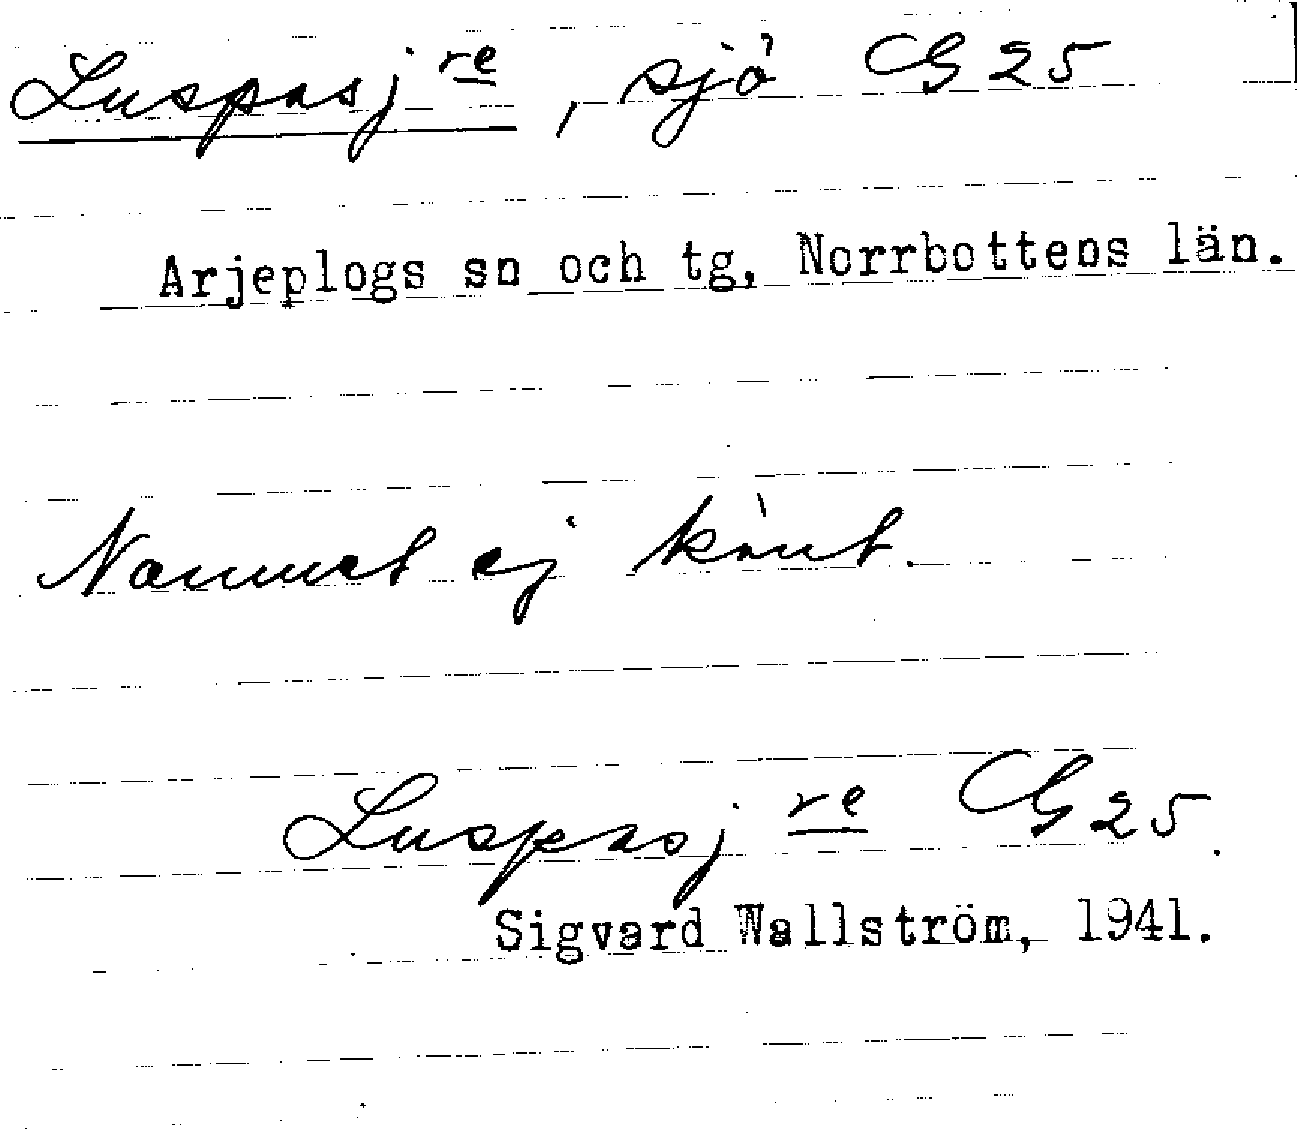 Luspasjre, sjö G25
Arjeplogs sn och tg, Norrbottens län.
Namnet ej känt.
Luspasjre G25.
Sigvard Wallström, 1941.